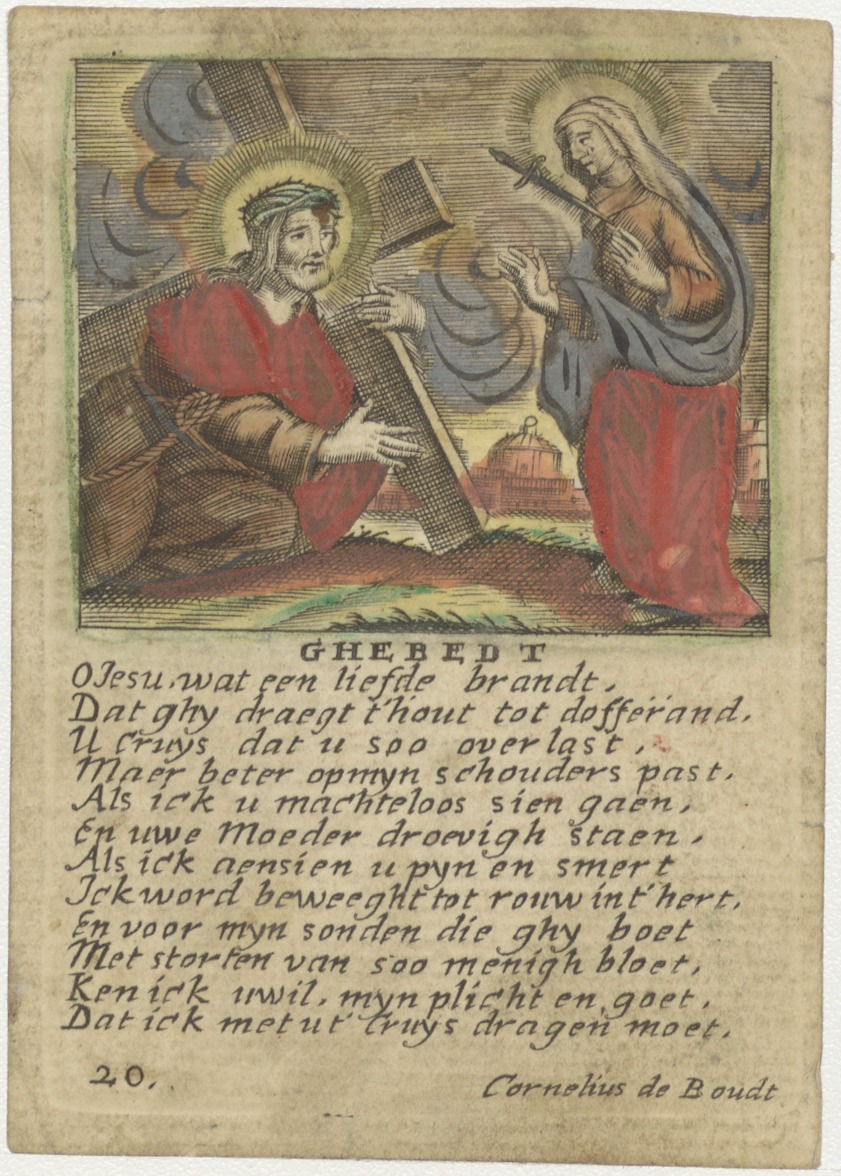 GHEBEDT
O Jesu, wat een liefde brandt,
Dat ghy draegt t'hout tot dofferand,
U Cruys dat u soo overlast,
Maer beter op myn schouders past,
Als ick u machteloos sien gaen,
En uwe Moeder droevigh staen,
Als ick aensien u pyn en smert
Ick word beweeght tot rouw int' hert,
En voor myn sonden die ghy boet
Met storten van soo menigh bloet,
Ken ick uwil, myn plicht en goet,
Dat ick met ut' Cruys dragen moet,
20.
Cornelius de Boudt